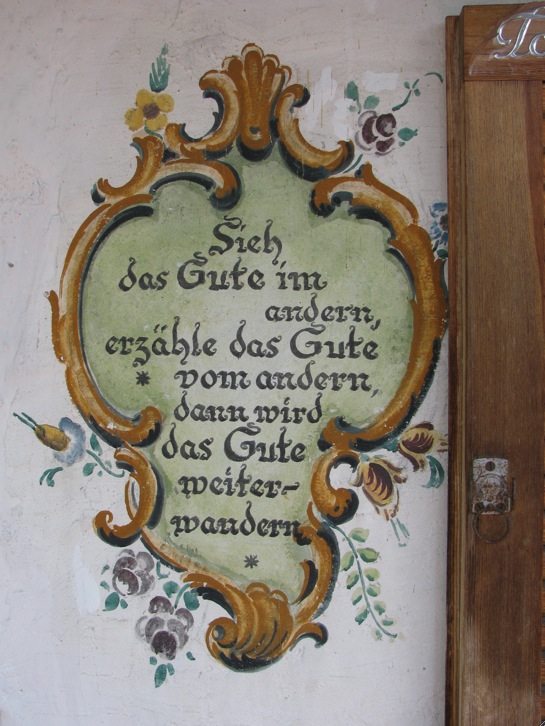 Sieh
das Gute im
andern,
erzähle das Gute
* vom andern,
dann wird
das Gute
weiter-
wandern
*